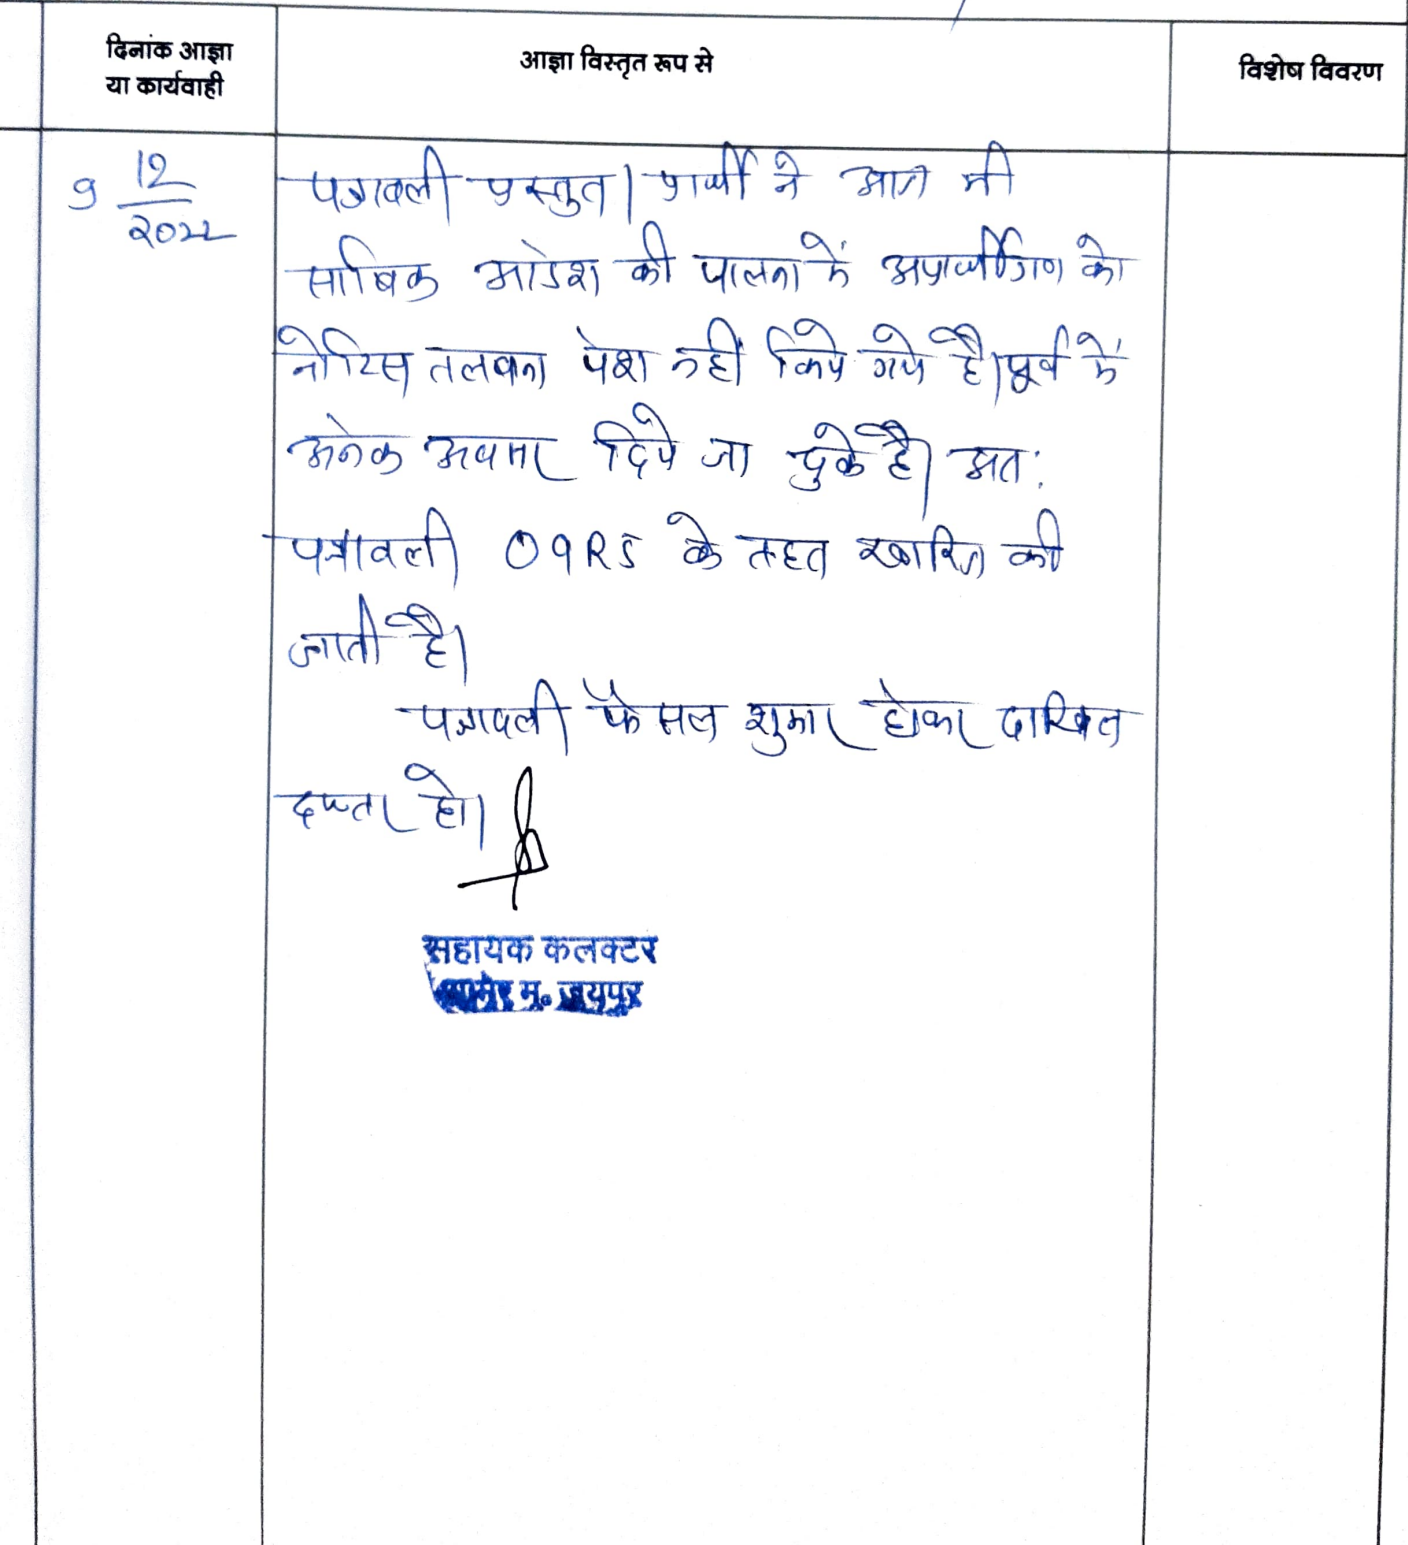 दिनांक आज्ञा
या कार्यवाही
आज्ञा विस्तृत रूप से
विशेष विवरण
9 12/2022
पत्रावली प्रस्तुत। प्रार्थी ने आज भी
साबिक आदेश की पालना में अप्रार्थीगण को
नोटिस तलवाना पेश नहीं किये गये है। पूर्व में
अनेक अवसर दिये जा चुके है। अत:
पत्रावली O9R5 के तहत खारिज की
जाती है।
पत्रावली फैसल शुमार होकर दाखिल
दफ्तर हो।
सहायक कलक्टर
आमेर मु. जयपुर